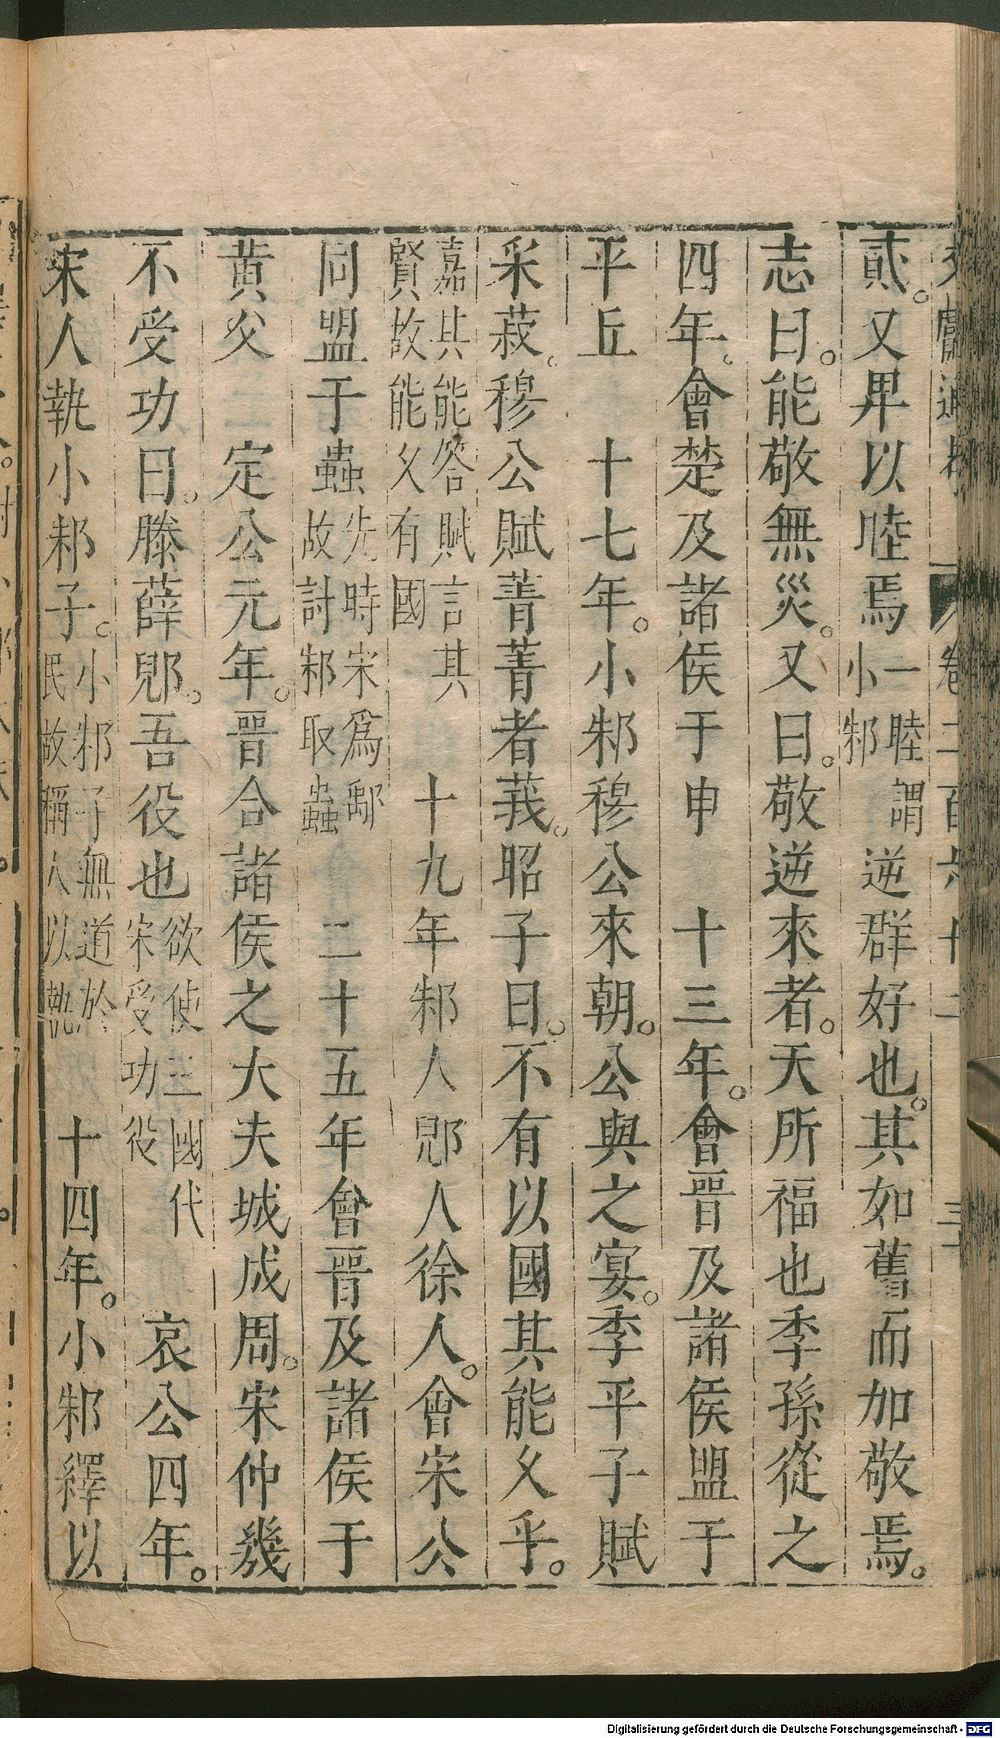 文獻通考 卷二百六十二 三
貳。又卑以睦焉一睦謂小邾逆群好也。其如舊而加敬焉。
志曰。能敬無災。又曰。敬逆來者。天所福也季孫從之
四年。會楚及諸侯于申 十三年。會晉及諸侯盟于
平丘 十七年。小邾穆公來朝。公與之宴。季平子賦
采菽。穆公賦菁菁者莪。昭子曰。不有以國其能乆乎。
嘉其能答賦言其賢故能乆有國 十九年邾人郳人徐人。會宋公
同盟于蟲先時宋爲鄅故討邾取蟲 二十五年會晉及諸侯于
黄父 定公元年。晉合諸侯之大夫城成周。宋仲幾
不受功曰。滕薛郳。吾役也欲使三國代宋受功役 哀公四年。
宋人執小邾子。小邾子無道於民故稱人以執 十四年。小邾繹以
Digitalisierung gefördert durch die Deutsche Forschungsgemeinschaft - DFG